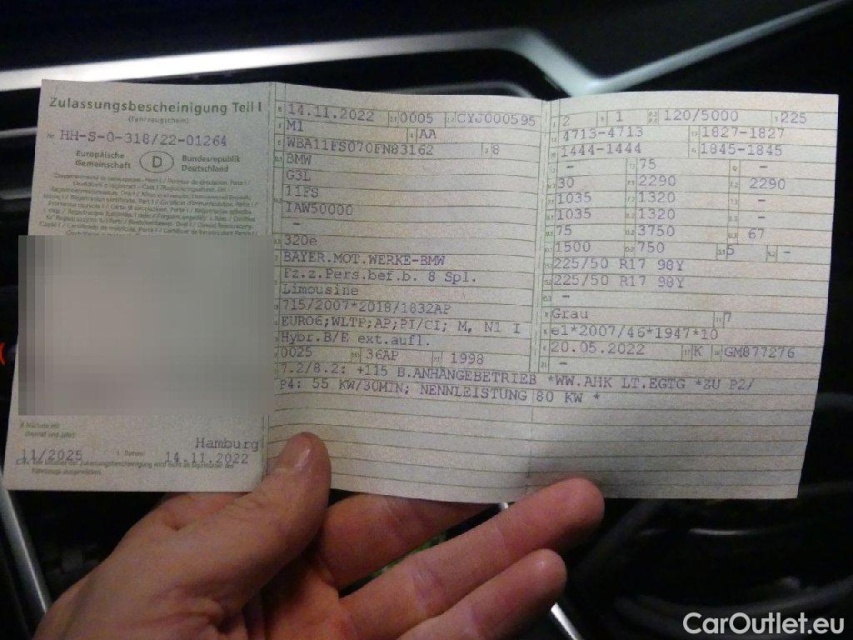 Zulassungsbescheinigung Teil I
(Fahrzeugschein)
Nr. HH-S-0-318/22-01264
Europäische Gemeinschaft D Bundesrepublik Deutschland
Hamburg
11/2025 14.11.2022
14.11.2022 0005 CYJ000595
M1 AA
WBA11FS070FN83162 8
BMW
G3L
11FS
1AW50000
–
320e
BAYER.MOT.WERKE-BMW
Fz.z.Pers.bef.b. 8 Spl.
Limousine
715/2007*2018/1832AP
EURO6;WLTP;AP;PI/CI; M, N1 I
Hybr.B/E ext.aufl.
0025 36AP 1998
7.2/8.2: +115 B.ANHÄNGEBETRIEB *WW.AHK LT.EGTG *ZU P2/
P4: 55 KW/30MIN; NENNLEISTUNG 80 KW *
2 1 120/5000 225
4713-4713 1827-1827
1444-1444 1845-1845
– 75 – –
30 2290 2290
1035 1320 –
1035 1320 –
75 3750 67
1500 750 5 –
225/50 R17 98Y
225/50 R17 98Y
–
Grau 7
e1*2007/46*1947*10
20.05.2022 K GM877276
–
CarOutlet.eu